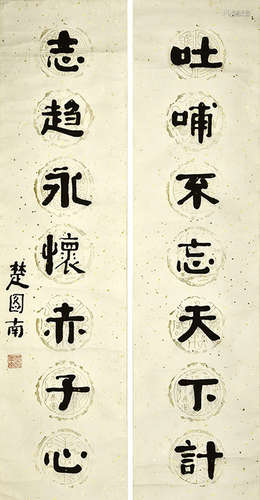 吐哺不忘天下計
志趋永懷赤子心
楚图南